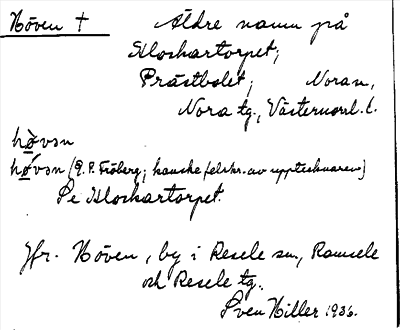 Höven † Äldre namn på
Klockartorpet;
Prästbolet; Noran,
Nora tg., Västernorrl. l.
hø̀vən
hø̀vən (P. P. Fröberg; kanske felskr. av upptecknaren)
Se Klockartorpet.
Jfr. Höven, by i Resele sn, Ramsele
och Resele tg.
Sven Hiller 1936.